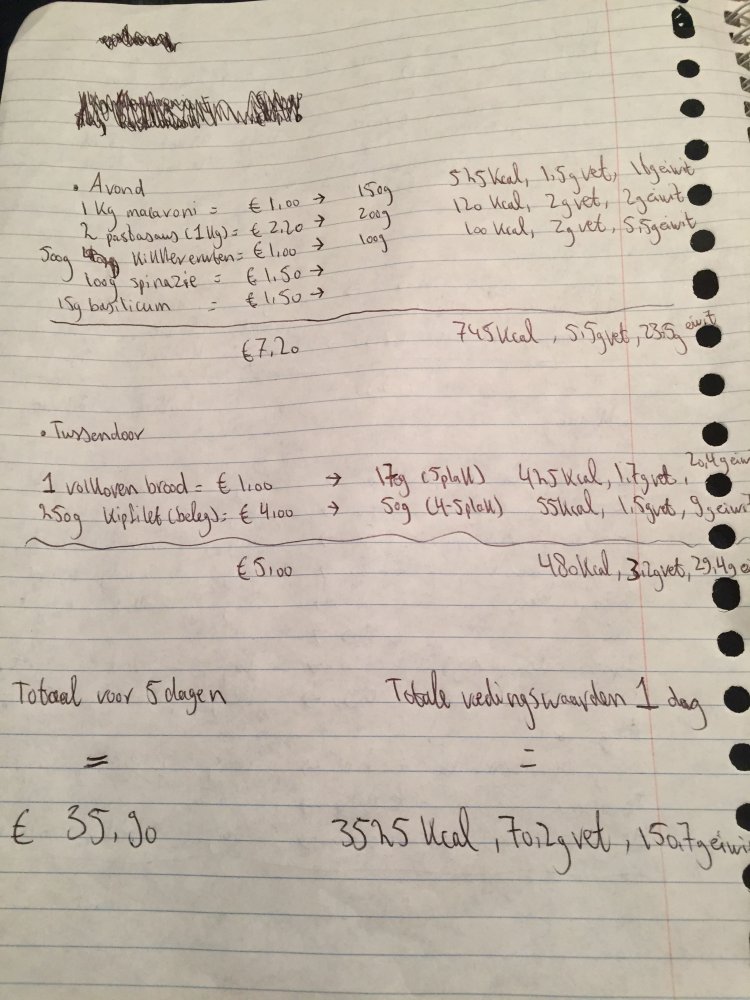 • Avond
1 Kg macaroni = € 1,00 → 150g 525 Kcal, 1,5g vet, 16g eiwit
2 pastasaus (1Kg) = € 2,20 → 200g 120 Kcal, 2g vet, 2g eiwit
500g = € 1,00 → 100g 100 Kcal, 2g vet, 5,5g eiwit
100g spinazie = € 1,50 →
15g basilicum = € 1,50 →
€7,20 745 Kcal, 5,5g vet, 23,5g eiwit
• Tussendoor
1 volkoren brood = € 1,00 → 170g (5plak) 425 Kcal, 1,7g vet, 20,4g eiwi
250g Kipfilet (beleg) = € 4,00 → 50g (4-5plak) 55Kcal, 1,5g vet, 9g eiwit
€5,00 480 Kcal, 3,2g vet, 29,4g ei
Totaal voor 5 dagen Totale voedingswaarden 1 dag
= =
€ 35,90 3525 Kcal, 70,2g vet, 150,7g eiwi